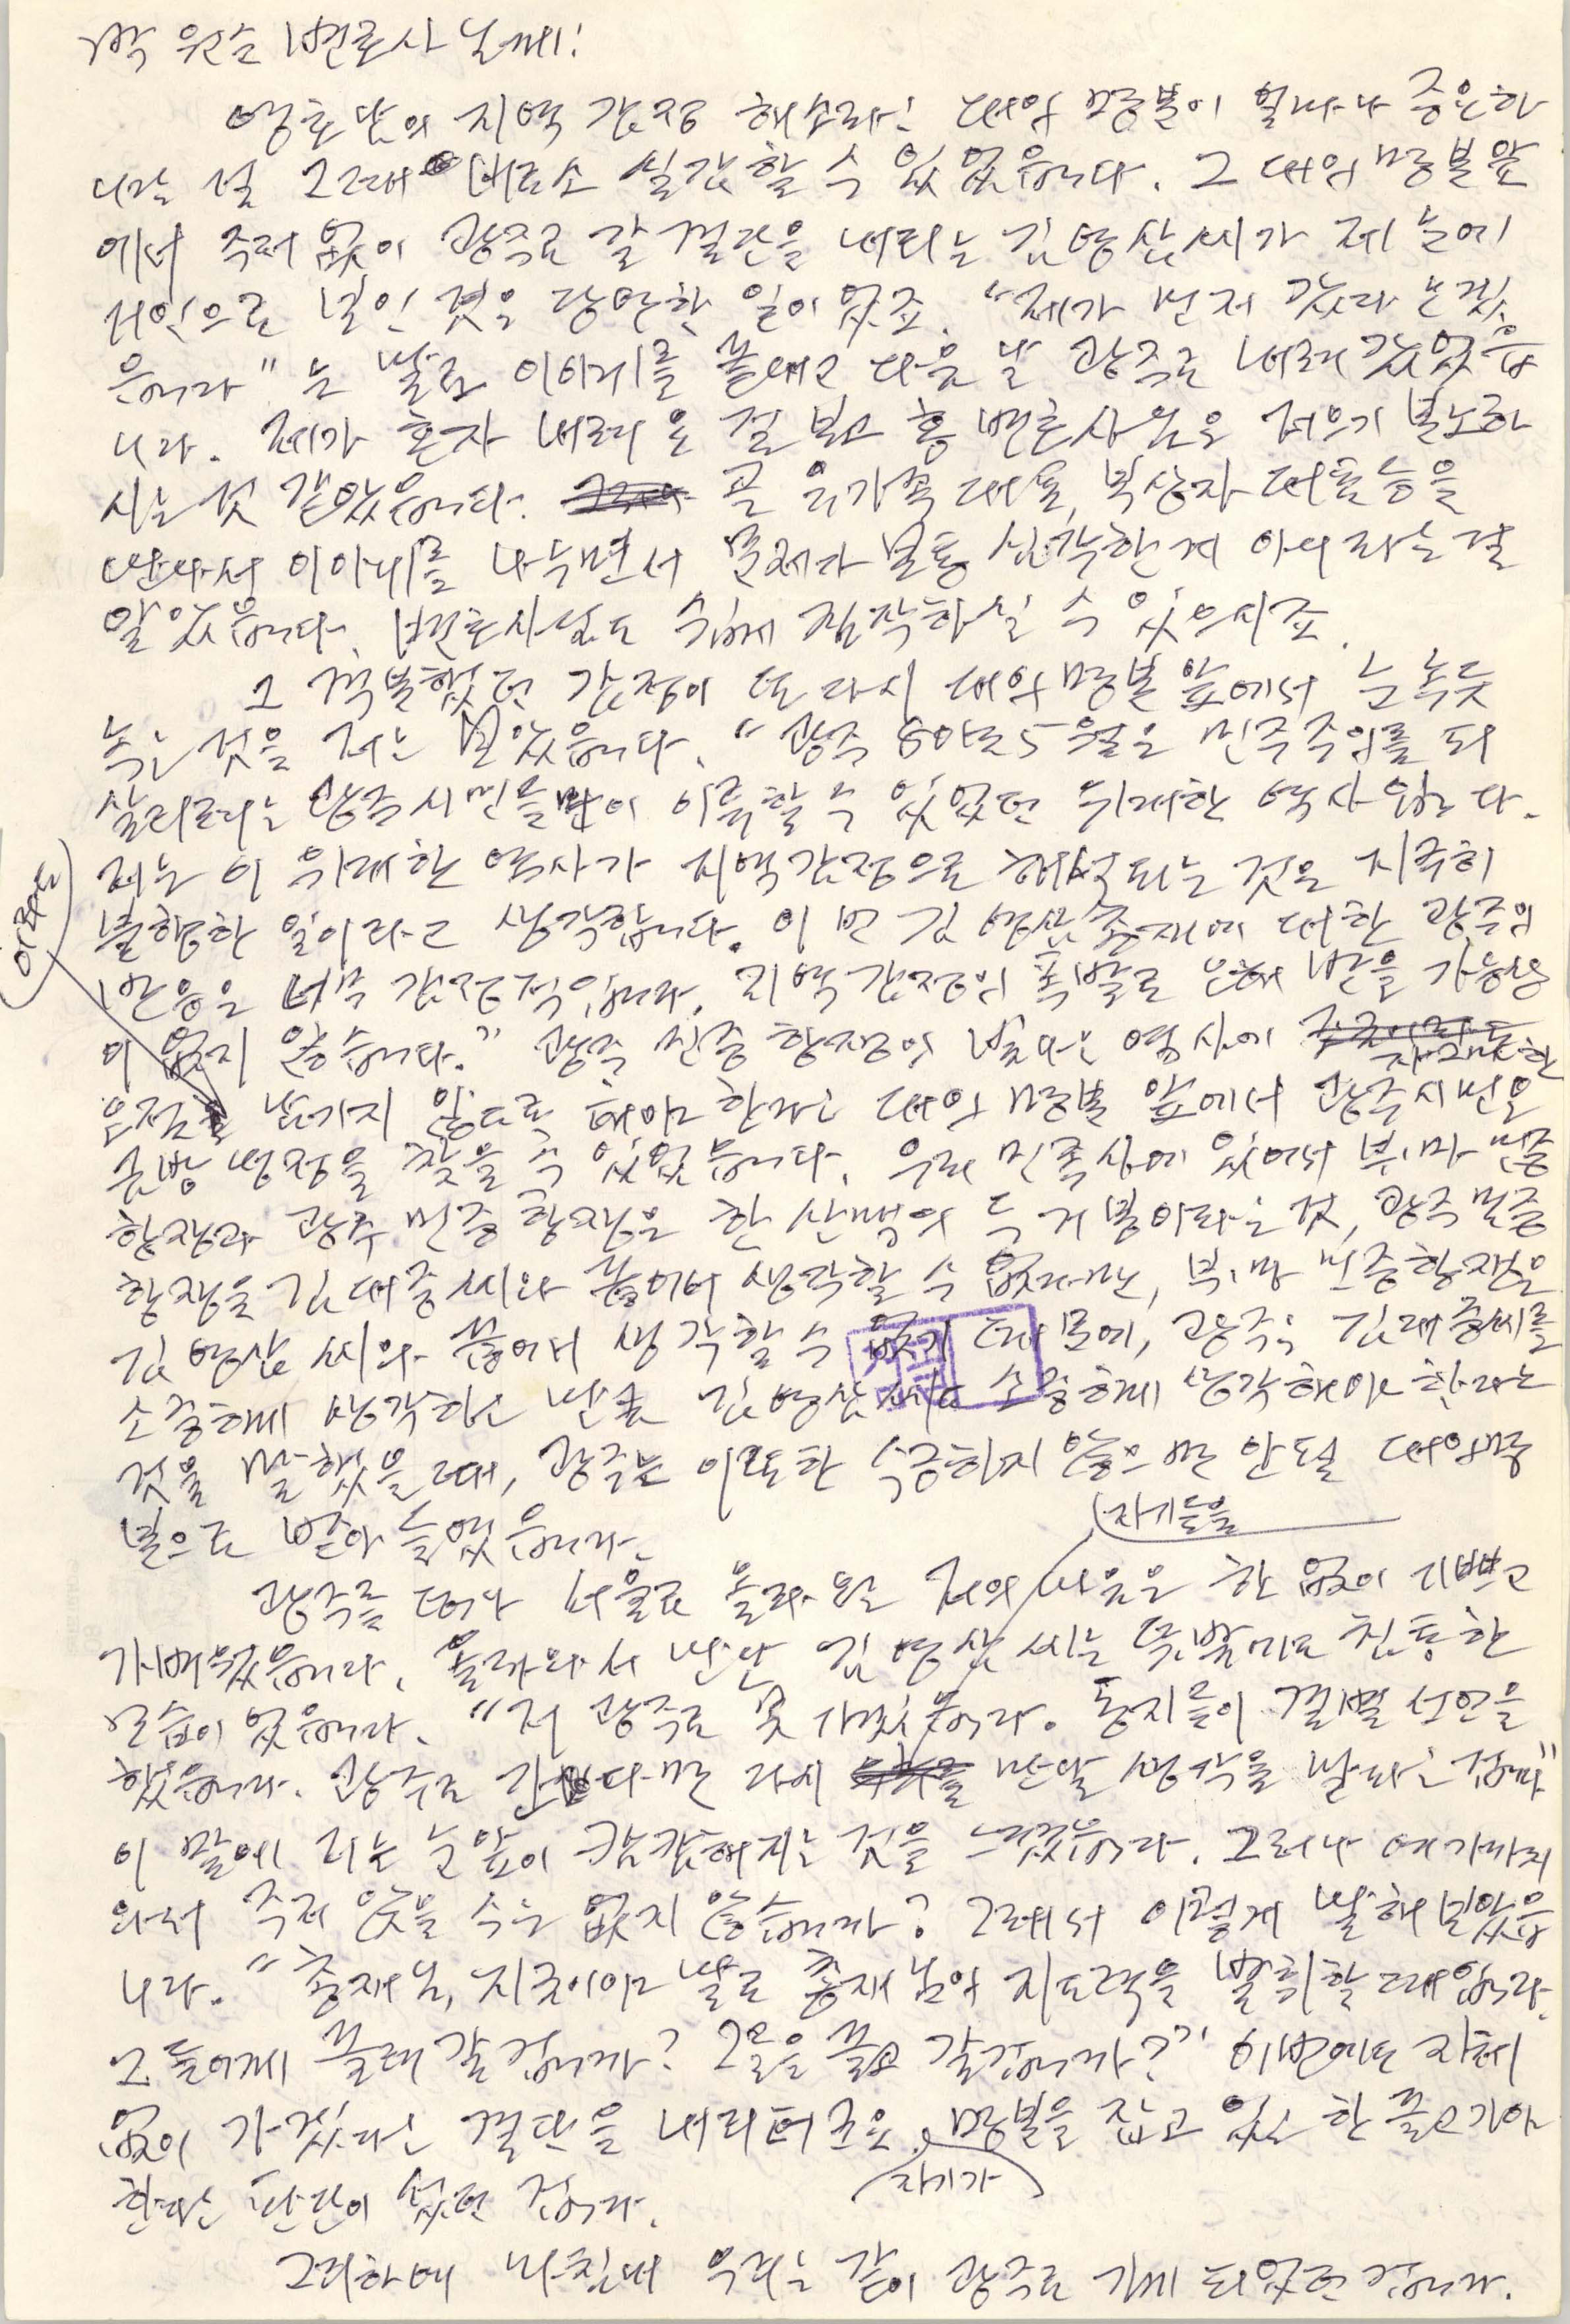 박 원순 변호사님께!
영호남의 지역 감정 해소라는 대의 명분이 얼마나 중요한
니가를 전 그때 비로소 실감할 수 있었읍니다. 그 대의 명분 앞
에서 주저 없이 광주로 갈 결단을 내리는 김영삼씨가 제 눈에
거인으로 보인 것은 당연한 일이었죠. "제가 먼저 갔다 오겠
읍니다" 는 말로 이야기를 끝내고 다음 날 광주로 내려갔었읍
니다. 제가 혼자 내려온 걸 보고 홍 변호사님은 적으기 분노하
시는 것 같았읍니다. 곧 유가족 대표, 부상자 대표 등을
만나서 이야기를 나누면서 문제가 보통 심각한게 아니라는 걸
알았읍니다. 변호사님도 쉽게 짐작하실 수 있으시죠.
그 격분했던 감정이 또 다시 대의 명분 앞에서 눈 녹듯
녹는 것을 저는 보았읍니다. "광주 80년도 5월은 민주주의를 되
살리려는 광주 시민들만이 이룩할 수 있었던 위대한 역사입니다.
저는 이 위대한 역사가 지역감정으로 해석되는 것은 지극히
불행한 일이라고 생각합니다. 이 번 김영삼 총재에 대한 광주의
반응은 너무 감정적입니다. 지역 감정의 폭발로 오해 받을 가능성
이 없지 않습니다." 광주 민중 항쟁의 빛나는 역사에
(이래도)
자그마한
오점을 남기지 않도록 해야 한다는 대의 명분 앞에서 광주시민은
금방 냉정을 찾을 수 있었읍니다. 우리 민족사에 있어서 부·마 민중
항쟁과 광주 민중 항쟁은 한 산맥의 두 거봉이라는 것, 광주 민중
항쟁을 김대중씨와 끊어서 생각할 수 없다면, 부·마 민중항쟁을
김영삼 씨와 끊어서 생각할 수 없기 때문에, 광주는 김대중씨를
소중하게 생각하는 만큼 김영삼씨도 소중하게 생각해야 한다는
것을 말했을 때, 광주는 이 또한 수긍하지 않으면 안될 대의명
분으로 받아 들였읍니다.
광주를 떠나 서울로 올라온 저의 마음은 한 없이 기쁘고
가벼웠읍니다. 올라와서 만난 김영삼 씨는 뜻밖에도 침통한
모습이었읍니다. "저 광주로 못 가겠읍니다. 동지들이 결별 선언을
했읍니다. 광주로 간다면 다시
(자기들을
만날 생각을 말라는 겁니다"
이 말에 저는 눈앞이 캄캄해지는 것을 느꼈읍니다. 그러나 여기까지
와서 주저 앉을 수는 없지 않습니까? 그래서 이렇게 말해 보았읍
니다. "총재님, 지금이야 말로 총재님의 지도력을 발휘할 때입니다.
그들에게 끌려 갈 겁니까? 그들을 끌고 갈 겁니까?" 이번에도 지체
없이 가겠다는 결단을 내리더군요. 명분을 잡고 있는 한 끌고가야
(자기가)
한다는 판단이 섰던 겁니다.
그리하여 마침내 우리는 같이 광주로 가게 되었던 겁니다.